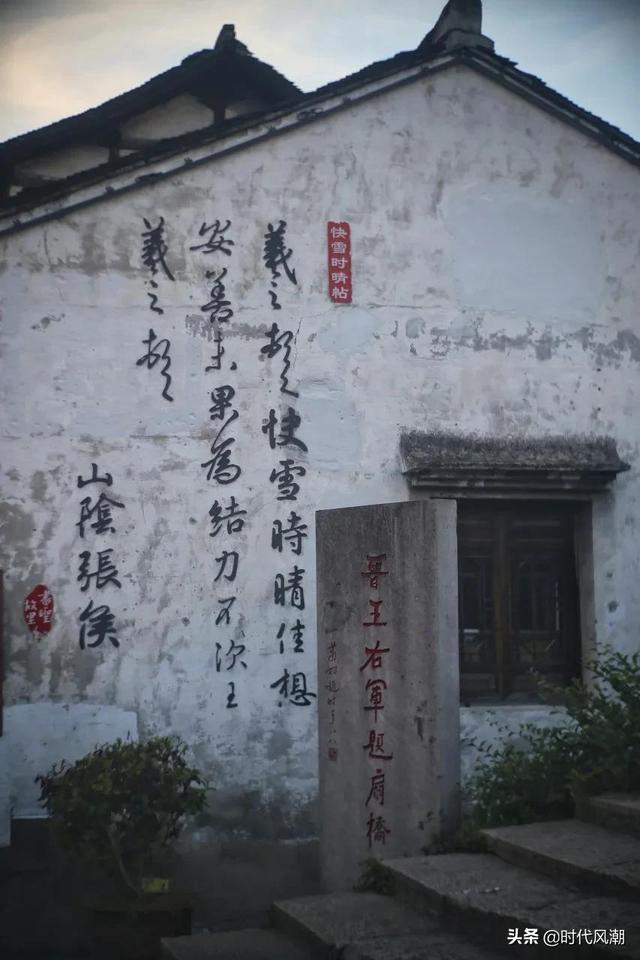 快雪时晴帖
羲之頓首快雪時晴佳想
安善未果為結力不次王
羲之頓首
山陰張侯
書聖
故里
晋王右軍題扇橋
头条 @时代风潮